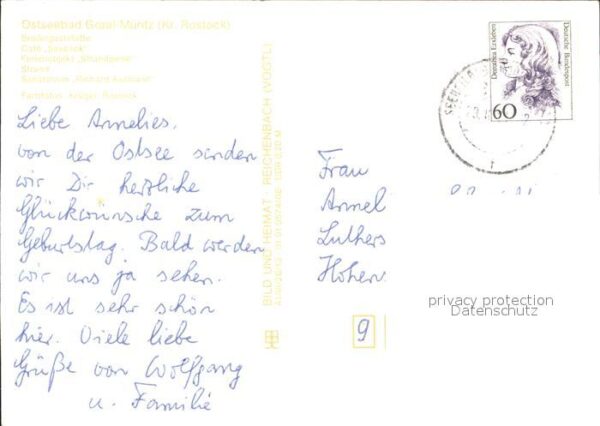 Ostseebad Graal-Müritz (Kr. Rostock)
Strand
Liebe Annelies,
von der Ostsee senden
wir Dir herzliche
Glückwünsche zum
Geburtstag. Bald werden
wir uns ja sehen.
Es ist sehr schön
hier. Viele liebe
Grüße von Wolfgang
u. Familie
BILD UND HEIMAT REICHENBACH (VOGTL)
Dorothea Erxleben
Deutsche Bundespost
60
Frau
Annel
Luthers
Hohen
9
privacy protection
Datenschutz